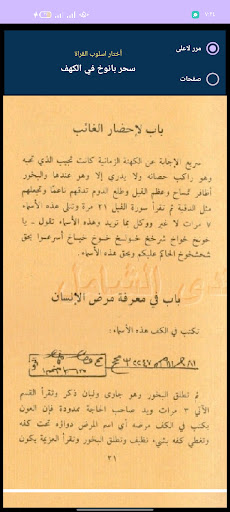 ٧:٢٤
أختار اسلوب القراة
مرر لاعلى
سحر بانوخ في الكهف
صفحات
باب لإحضار الغائب
سريع الإجابة عن الكهنة الزمانية كانت تجيب الذي تحبه
وهو راكب حصانه ولا يدري إلا وهو عندها والبخور
أظافر تمساح وعظم الفيل وطلع الدوم تدقهم ناعماً وتجعلهم
مثل الدقيق ثم تقرأ سورة الفيل ٢١ مرة وتتلى هذه الأسماء
٧ مرات لا غير ووكل بما تريد وهذه الأسماء تقول ـ يا
الحاكم عليكم وبحق هذه الأسماء.
باب في معرفة مرض الإنسان
تكتب في الكف هذه الأسماء:
ثم تطلق البخور وهو جاوى ولبان ذكر وتقرأ القسم
الآتي ٣ مرات ويد صاحب الحاجة ممدودة فإن العون
يكتب في الكف مرضه أي اسم المرض دواؤه تحت كفه
وتغطي كفه بشيء نظيف وتطلق البخور وتقرأ العزيمة يكون
٣١